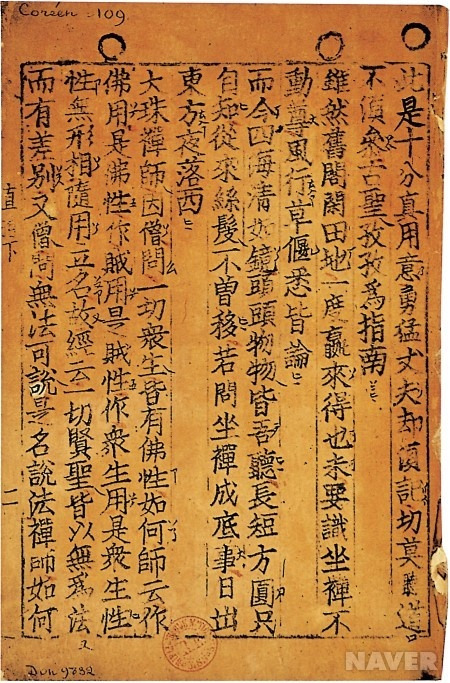 Coréen 109
此是十分真用意勇猛丈夫却須記切莫聽道
不須叅古聖孜孜爲指南
雖然舊閣閑田地一度贏來得也未要識坐禪不
動尊風行草偃悉皆論
而今四海清如鏡頭頭物物皆吾聽長短方圓只
自知從來絲髮不曾移若問坐禪成底事日出
東方夜落西
大珠禪師因僧問一切衆生皆有佛性如何師云作
佛用是佛性作賊用是賊性作衆生用是衆生性
性無形相隨用立名故經云一切賢聖皆以無爲法
而有差別又僧問無法可說是名說法禪師如何
直 下 二
9832
NAVER